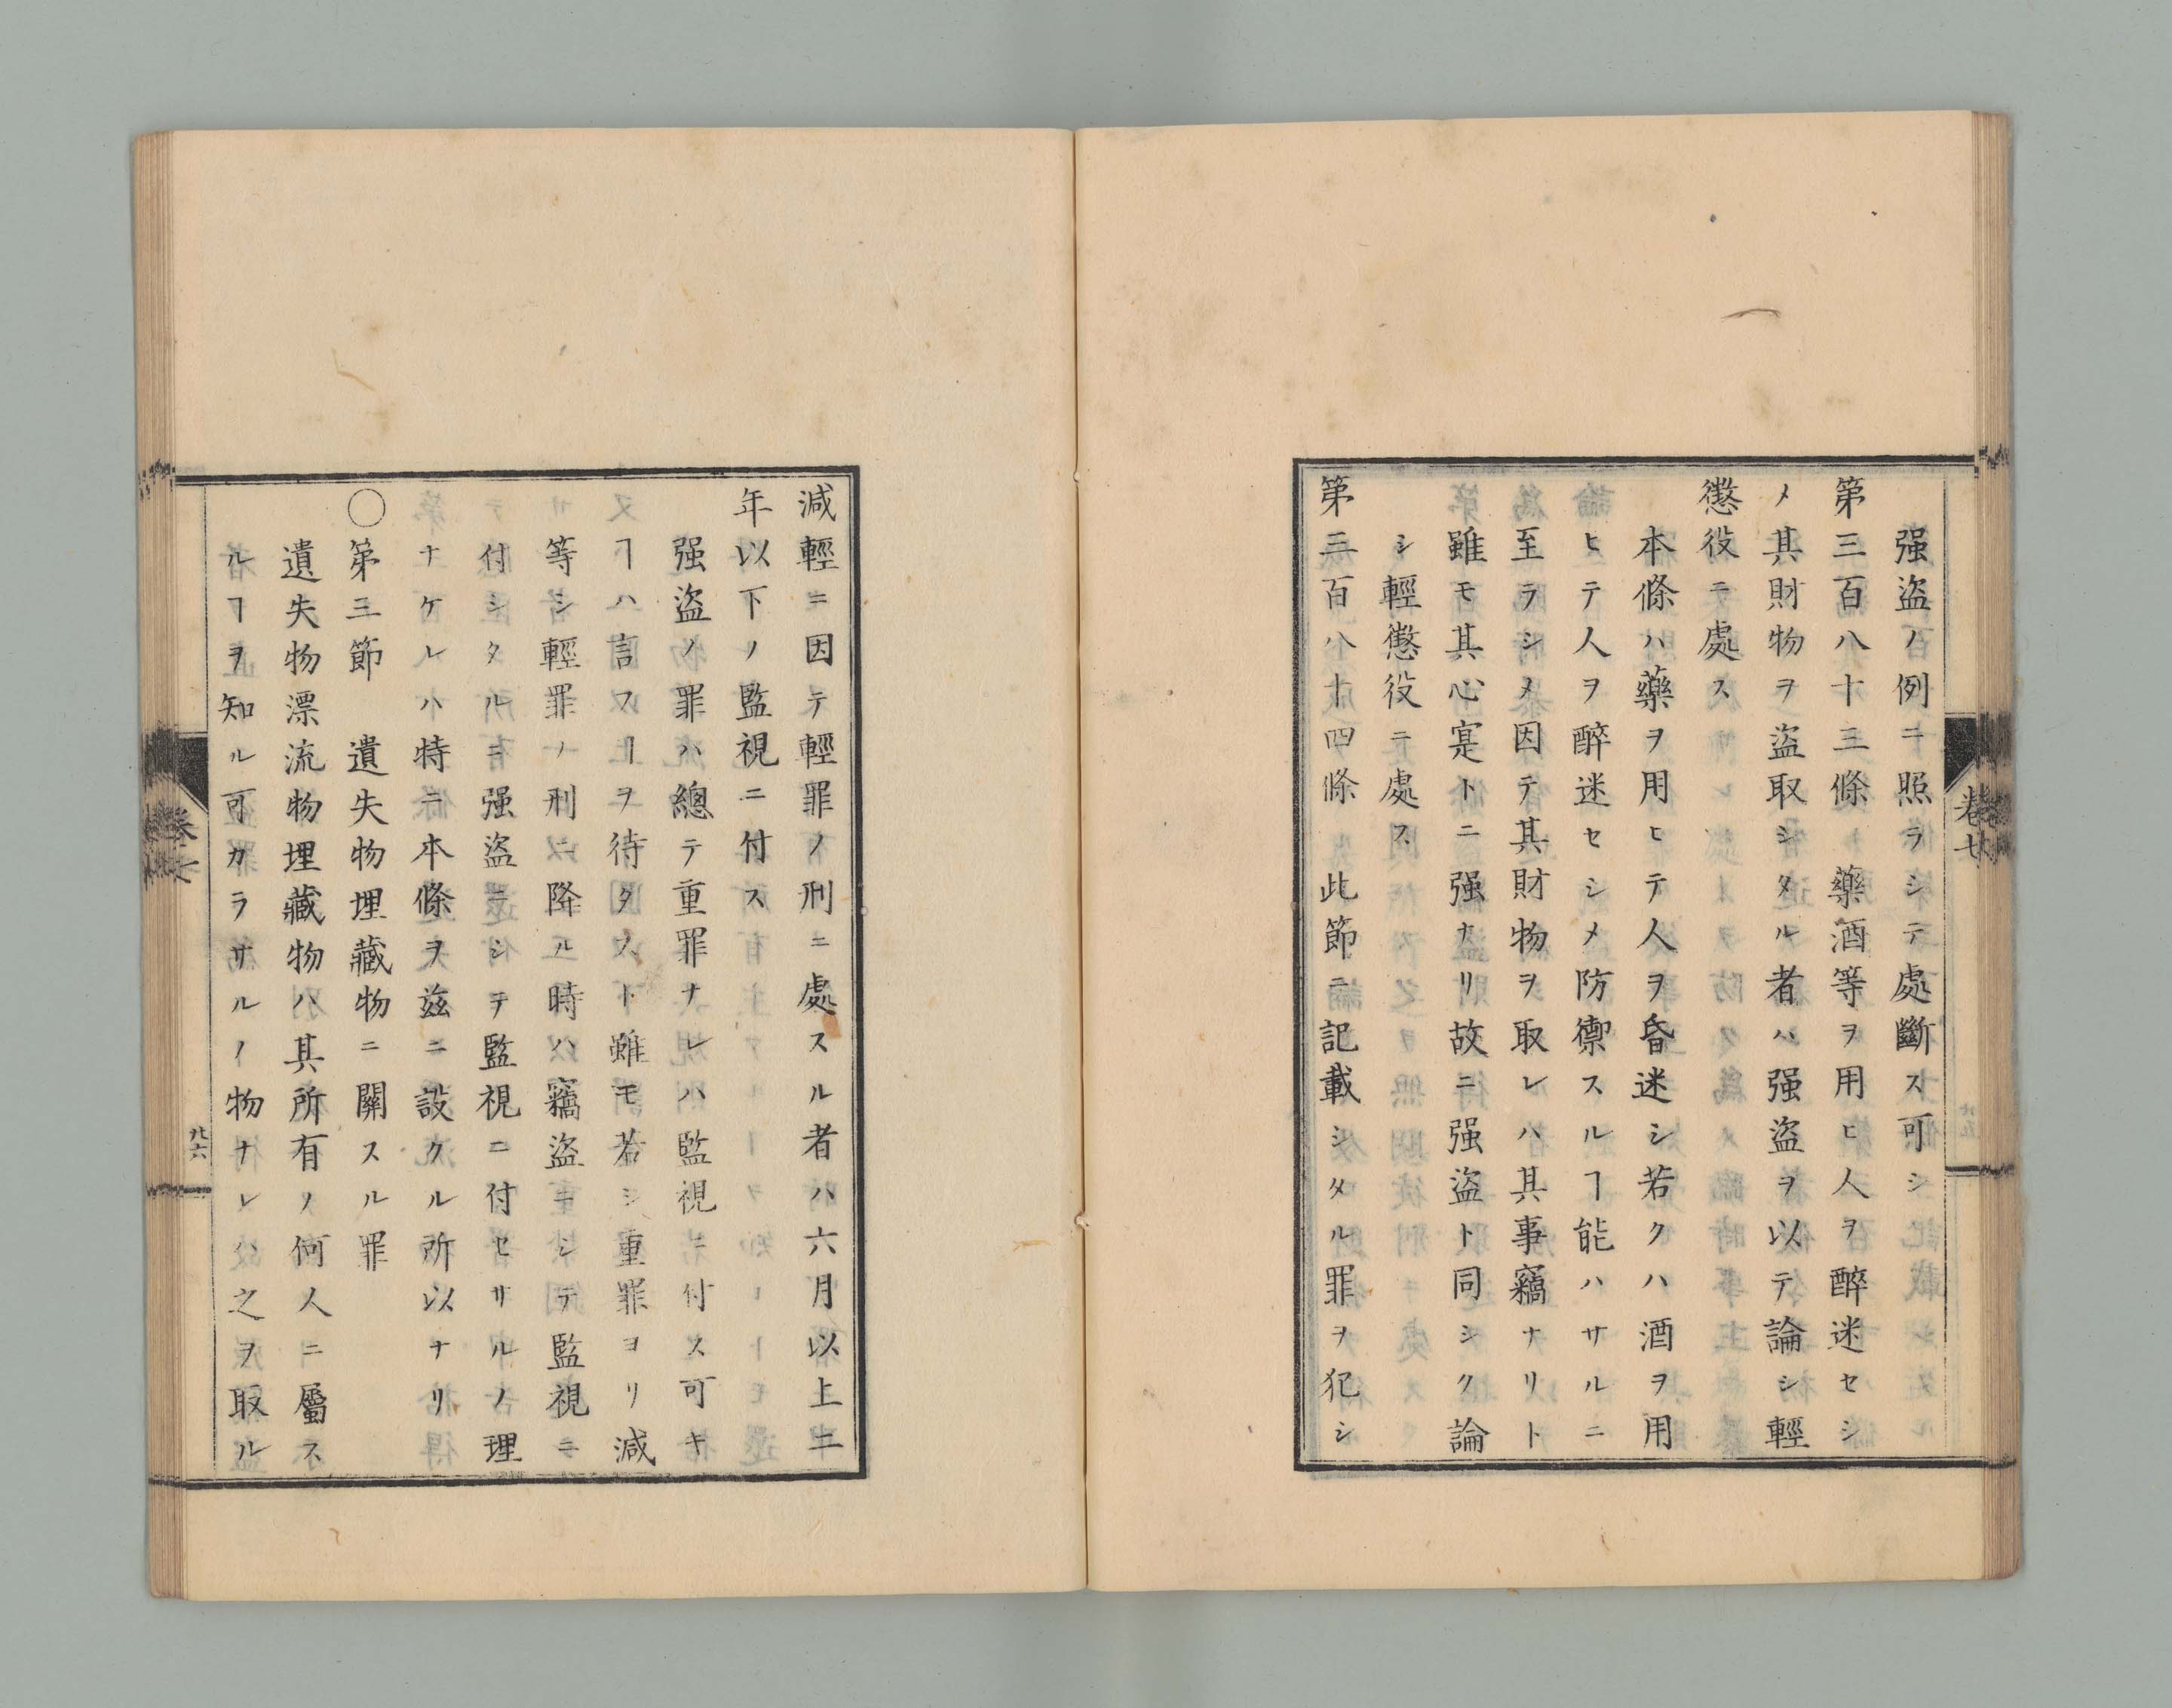 强盜ノ例ニ照ラシテ處斷ス可シ
第三百八十三條 藥酒等ヲ用ヒ人ヲ醉迷セシ
メ其財物ヲ盜取シタル者ハ强盜ヲ以テ論シ輕
懲役ニ處ス
本條ハ藥ヲ用ヒテ人ヲ昏迷シ若クハ酒ヲ用
ヒテ人ヲ醉迷セシメ防禦スルヿ能ハサルニ
至ラシメ因テ其財物ヲ取レハ其事竊ナリト
雖モ其心寔トニ强ナリ故ニ强盜ト同シク論
シ輕懲役ニ處ス
第三百八十四條 此節ニ記載シタル罪ヲ犯シ
卷廿
減輕ニ因テ輕罪ノ刑ニ處スル者ハ六月以上二
年以下ノ監視ニ付ス
强盜ノ罪ハ總テ重罪ナレハ監視ニ付ス可キ
ヿハ言フヿヲ待タスト雖モ若シ重罪ヨリ減
等シ輕罪ノ刑ニ降ル時ハ竊盜ニシテ監視ニ
付シタルニ强盜ニシテ監視ニ付セサルノ理
ナケレハ特ニ本條ヲ茲ニ設クル所以ナリ
〇第三節 遺失物埋藏物ニ關スル罪
遺失物漂流物埋藏物ハ其所有ノ何人ニ屬ス
ルヿヲ知ル可カラサルノ物ナレハ之ヲ取ル
廿六